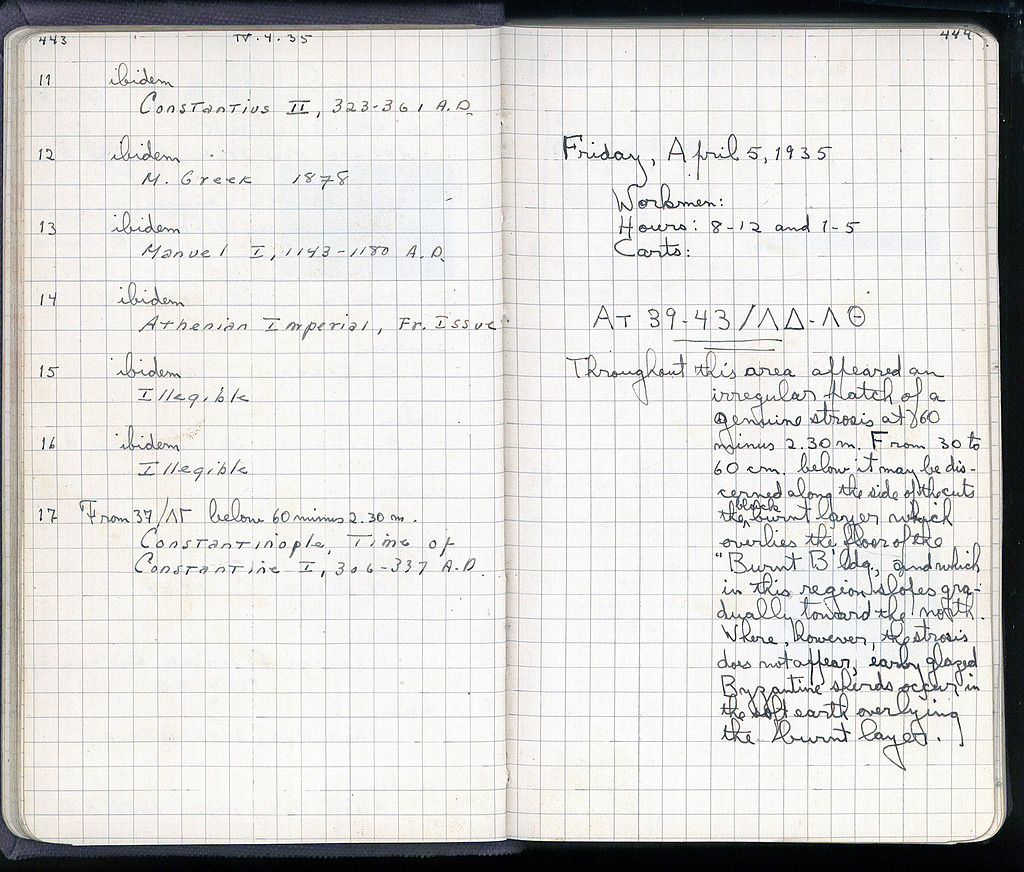 443
IV.4.35
11 ibidem
Constantius II, 323-361 A.D.
12 ibidem
M. Greek 1878
13 ibidem
Manuel I, 1143-1180 A.D.
14 ibidem
Athenian Imperial, Fr. Issue
15 ibidem
Illegible
16 ibidem
Illegible
17 From 37/ΛΓ below 60 minus 2.30 m.
Constantinople, Time of
Constantine I, 306-337 A.D.
444
Friday, April 5, 1935
Workmen:
Hours: 8-12 and 1-5
Carts:
AT 39-43/ΛΔ-ΛΘ
Throughout this area appeared an
irregular patch of a
genuine strosis at 60
minus 2.30 m. From 30 to
60 cm. below it may be dis-
cerned along the side of the cuts
black
the burnt layer which
overlies the floor of the
"Burnt B'ldg., and which
in this region slopes gra-
dually toward the north.
Where, however, the strosis
does not appear, early glazed
Byzantine sherds occur in
the soft earth overlying
the burnt layer. ]